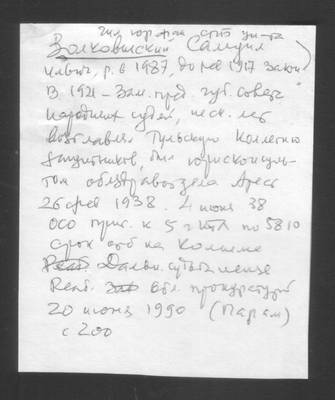 юр. фак.
Волковинский Самуил
Ильич, р. в 1987, до рев 1917 закон
В 1921 – Зам. пред. губ. совета
народных судей, неск. лет
возглавлял Тульскую Коллегию
защитников, был юрисконсуль-
том облздравотдела Арест
26 фев 1938. 4 июня 38
осо приг. к 5 г ИТЛ по 58 10
срок отб на Колыме
Реаб. Дальн. судьба неизв
Реаб. обл. прокуратурой
20 июня 1990 (Парам)
с 200